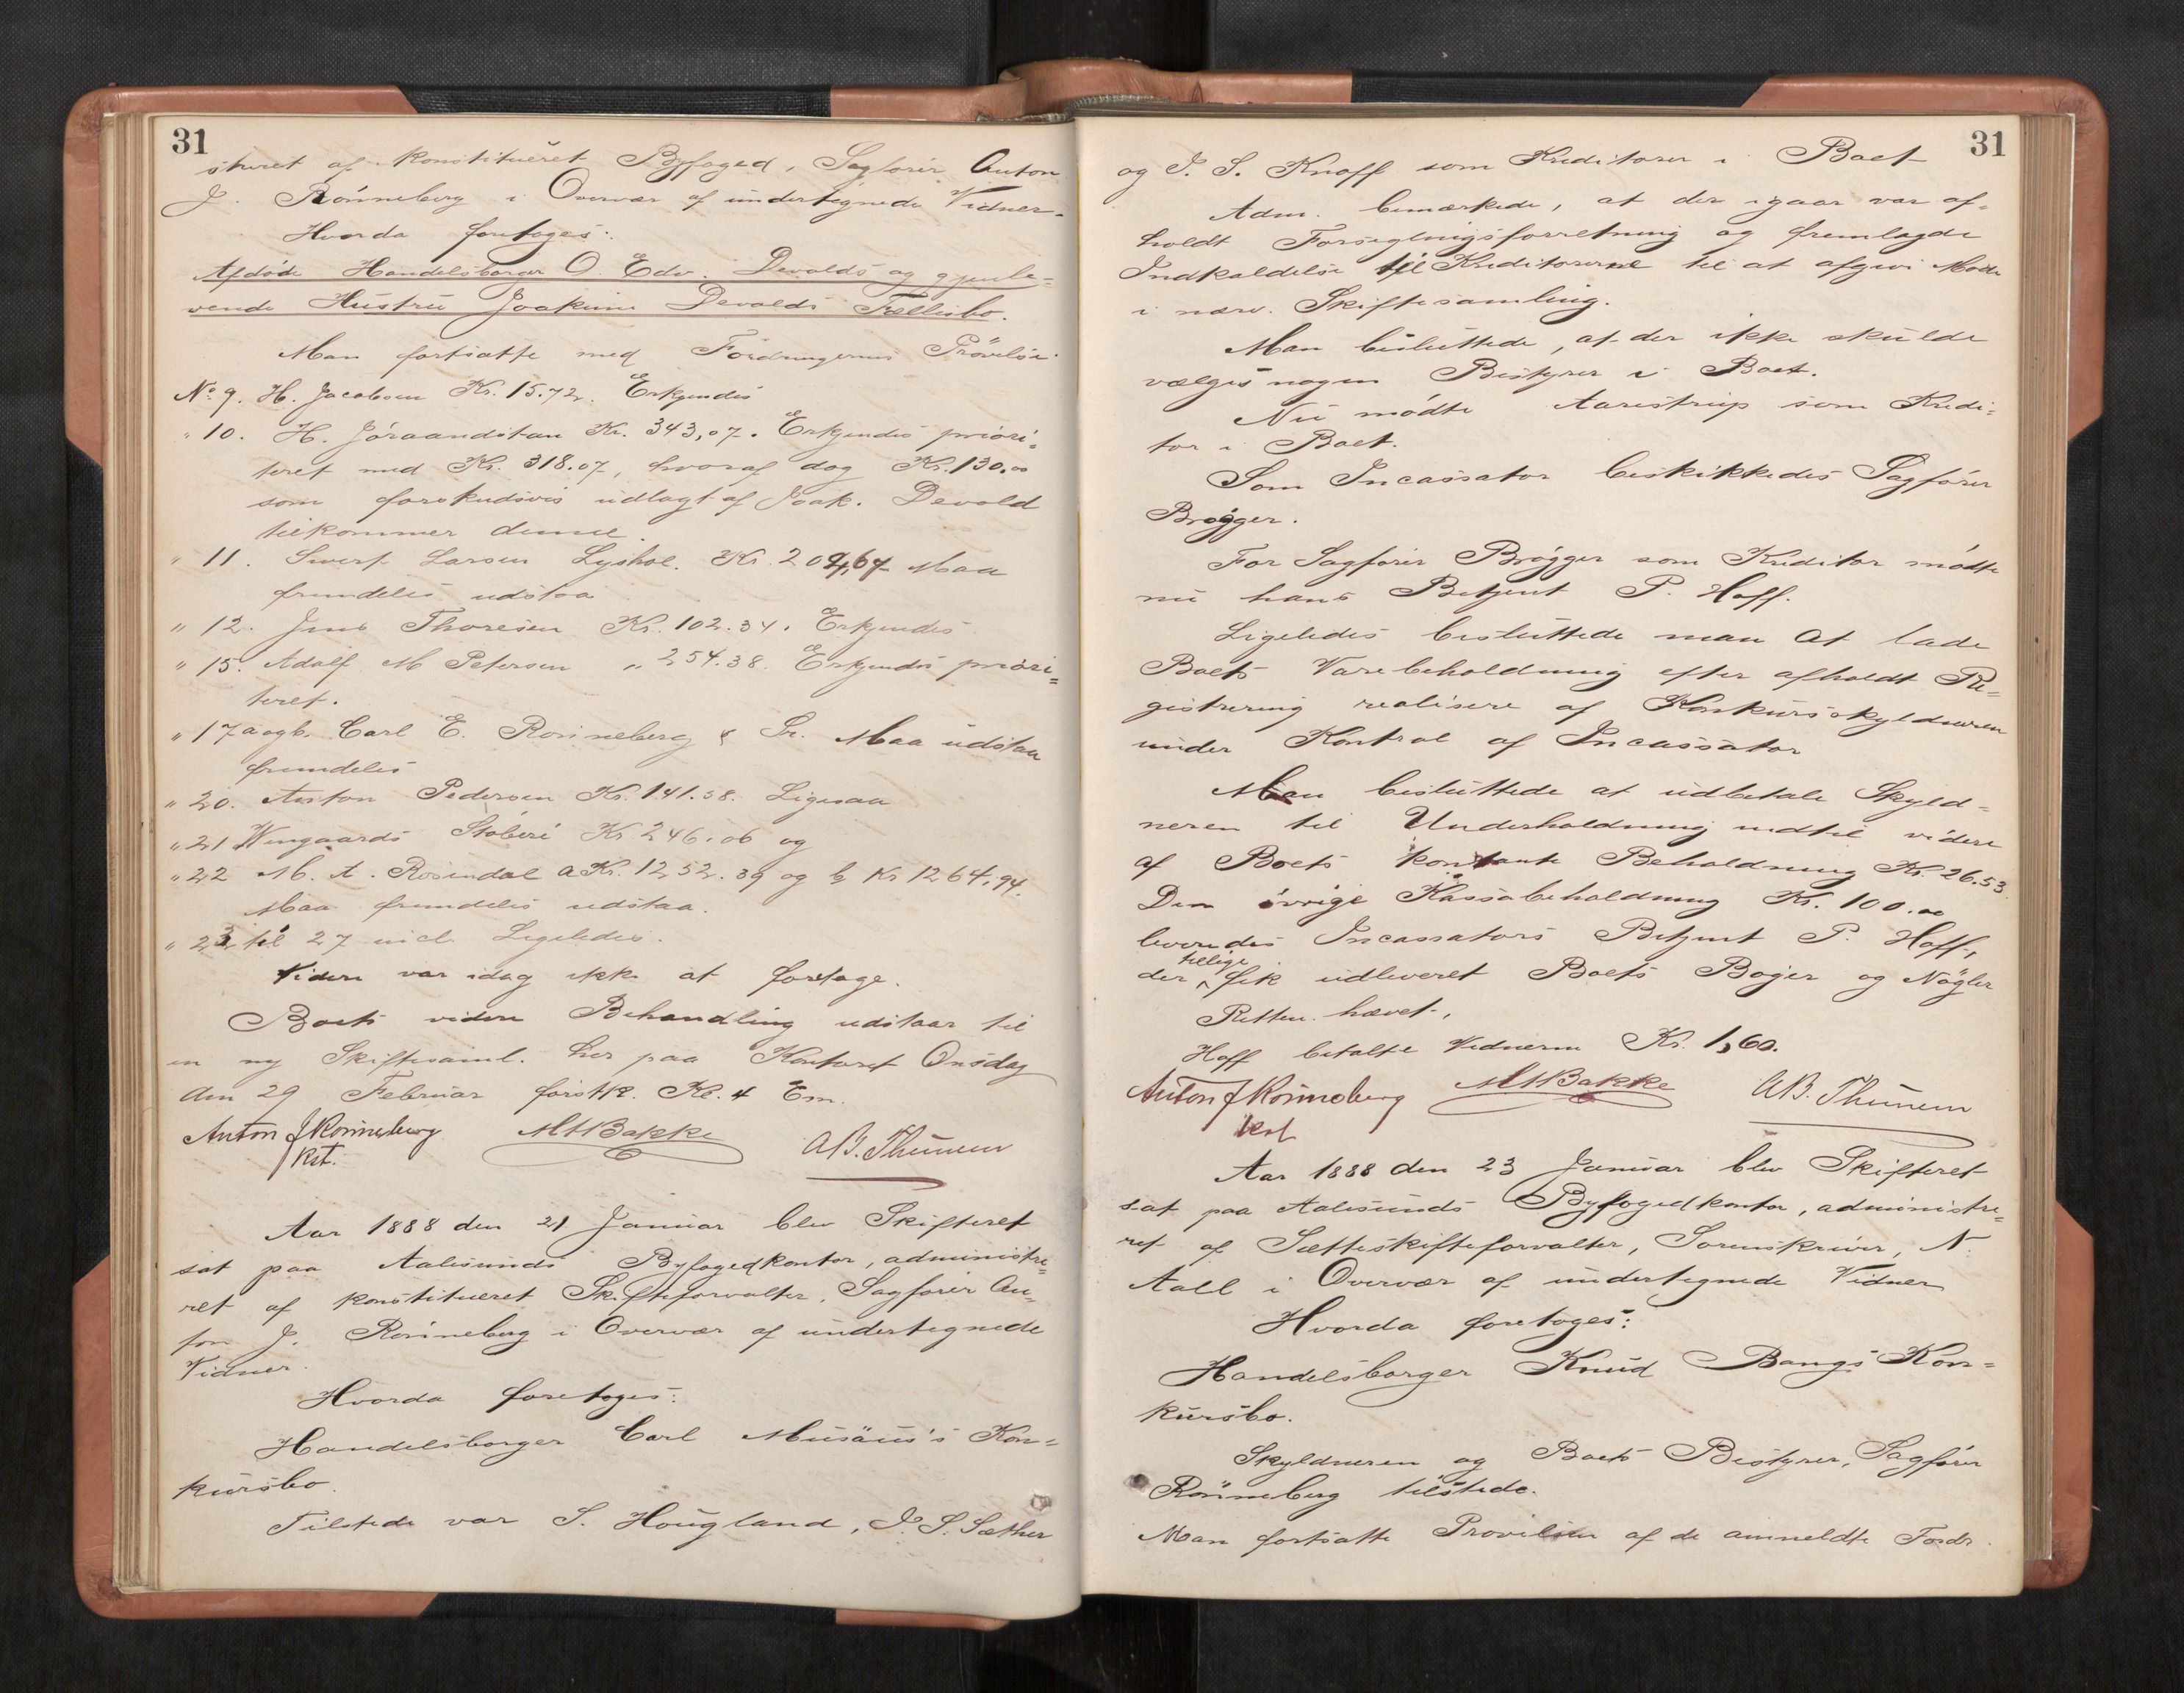 31
streret af konstitueret Byfoged, Sagfører Anton
J. Rønneberg i Overvær af undertegnede Vidner.
Hvorda foretoges:
Afdøde Handelsborger O. Edv. Devolds og gjenle-
vende Hustru Joakime Devolds Fællesbo.
Man fortsatte med Fordringernes Prøvelse.
No 9. H. Jacobsen Kr. 15.72. Erkjendes
" 10. H. Jøraandstau Kr. 343,07. Erkjendes priori-
teret med Kr. 318.07, hvoraf dog Kr. 130.00
som forskudsvis udlagt af Joak. Devold
tilkommer denne.
" 11. Sivert Larsen Lyshol. Kr. 204,67 Maa
fremdeles udstaa
" 12. Jens Thoresen Kr. 102.34. Erkjendes
" 15. Adolf M Petersen " 254.38. Erkjendes priori=
teret.
" 17 a og b. Carl E. Rønneberg & Sr. Maa udstaa
fremdeles
" 20. Anton Pedersen Kr. 141.58. Ligesaa
" 21 Wingaards Støberi Kr 246.06 og
" 22 M. A. Rosendal a Kr. 1252.39 og b Kr 1264,94.
Maa fremdeles udstaa.
" 23 til 27 incl. Ligeledes.
Videre var idag ikke at foretage.
Boets videre Behandling udstaar til
en ny Skiftesaml. her paa Kontoret Onsdag
den 29 Februar førstk. Kl. 4 Em.
Anton J Rønneberg MABakke A.B. Thunem
kst.
Aar 1888 den 21 Januar blev Skifteret
sat paa Aalesunds Byfogedkontor, administre=
ret af konstitueret Skifteforvalter, Sagfører An=
ton J. Rønneberg i Overvær af undertegnede
Vidner.
Hvorda foretoges:
Handelsborger Carl Musäus's Kon=
kursbo.
Tilstede var S. Hougland, J. S. Sæther
31
og J. S. Knoff som Kreditorer i Boet
Adm. bemærkede, at der igaar var af=
holdt Forseglingsforretning og fremlagde
Indkaldelse til Kreditorerne til at afgive Møde
i nærv. Skiftesamling.
Man besluttede, at der ikke skulde
vælges nogen Bestyrer i Boet.
Nu mødte Aarestrup som Kredi=
tor i Boet.
Som Incassator beskikkedes Sagfører
Brøgger.
For Sagfører Brøgger som Kreditor mødte
nu hans Betjent P. Hoff.
Ligeledes besluttede man at lade
Boets Varebeholdning efter afholdt Re=
gistrering realisere af Konkursskyldneren
under Kontrol af Incassator
Man besluttede at udbetale Skyld=
neren til Underholdning indtil videre
af Boets kontante Beholdning Kr. 26.53.
Den øvrige Kassabeholdning Kr. 100.00
leveredes Incassators Betjent P. Hoff,
der tillige fik udleveret Boets Bøger og Nøgler
Retten hævet.
Hoff betalte Vidnerne Kr. 1,60.
Anton J Rønneberg MABakke A.B. Thunem
kst
Aar 1888 den 23 Januar blev Skifteret
sat paa Aalesunds Byfogedkontor, administre=
ret af Sætteskifteforvalter, Sorenskriver, N.
Aall i Overvær af undertegnede Vidner
Hvorda foretoges:
Handelsborger Knud Bangs Kon=
kursbo.
Skyldneren og Boets Bestyrer, Sagfører
Rønneberg tilstede.
Man fortsatte Prøvelsen af de anmeldte Fordr.